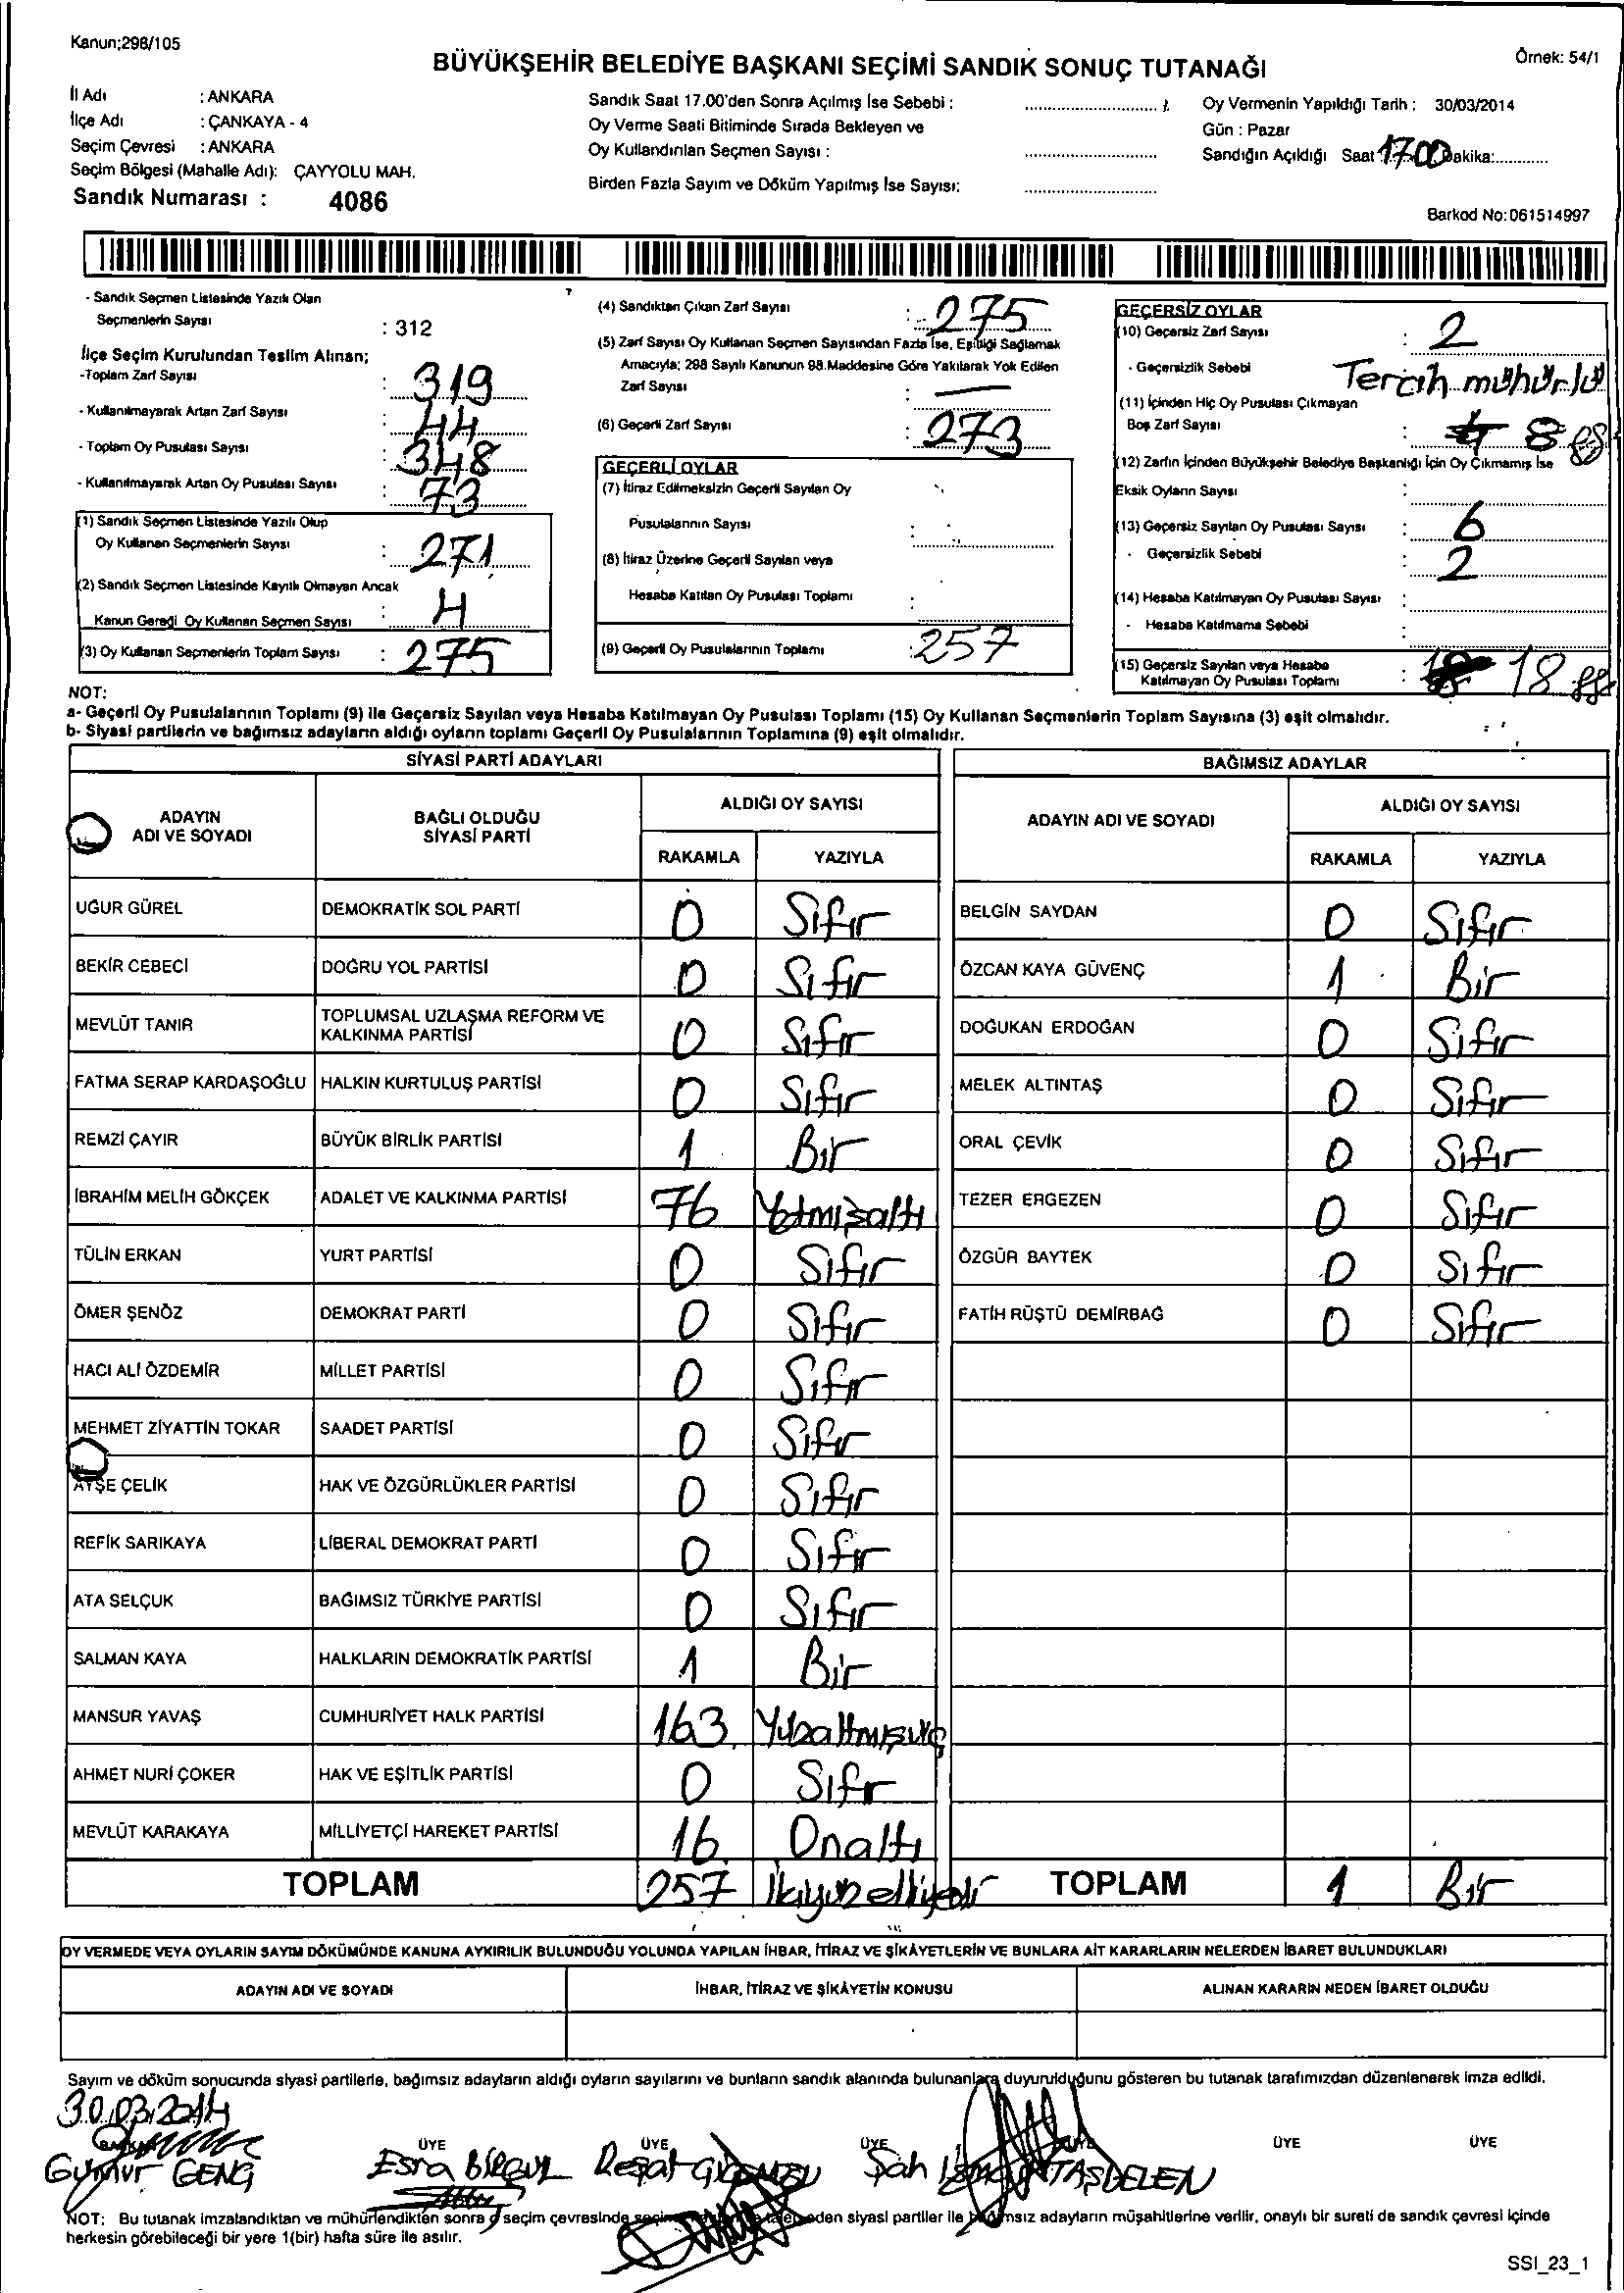 Kanun;298/105
BÜYÜKŞEHİR BELEDİYE BAŞKANI SEÇİMİ SANDIK SONUÇ TUTANAĞI
Örnek: 54/1
İl Adı : ANKARA
İlçe Adı : ÇANKAYA - 4
Seçim Çevresi : ANKARA
Seçim Bölgesi (Mahalle Adı): ÇAYYOLU MAH.
Sandık Numarası : 4086
Sandık Saat 17.00'den Sonra Açılmış İse Sebebi :
Oy Verme Saati Bitiminde Sırada Bekleyen ve
Oy Kullandırılan Seçmen Sayısı :
Birden Fazla Sayım ve Döküm Yapılmış İse Sayısı:
Oy Vermenin Yapıldığı Tarih : 30/03/2014
Gün : Pazar
Sandığın Açıldığı Saat 17.00 Dakika:
Barkod No:061514997
- Sandık Seçmen Listesinde Yazılı Olan
Seçmenlerin Sayısı : 312
İlçe Seçim Kurulundan Teslim Alınan;
-Toplam Zarf Sayısı : 319
- Kullanılmayarak Artan Zarf Sayısı : 44
- Toplam Oy Pusulası Sayısı : 348
- Kullanılmayarak Artan Oy Pusulası Sayısı : 73
(1) Sandık Seçmen Listesinde Yazılı Olup
Oy Kullanan Seçmenlerin Sayısı : 271
(2) Sandık Seçmen Listesinde Kayıtlı Olmayan Ancak
Kanun Gereği Oy Kullanan Seçmen Sayısı : 4
(3) Oy Kullanan Seçmenlerin Toplam Sayısı : 275
(4) Sandıktan Çıkan Zarf Sayısı : 275
(5) Zarf Sayısı Oy Kullanan Seçmen Sayısından Fazla İse, Eşitliği Sağlamak
Amacıyla; 298 Sayılı Kanunun 98.Maddesine Göre Yakılarak Yok Edilen
Zarf Sayısı : —
(6) Geçerli Zarf Sayısı : 273
GEÇERLİ OYLAR
(7) İtiraz Edilmeksizin Geçerli Sayılan Oy
Pusulalarının Sayısı :
(8) İtiraz Üzerine Geçerli Sayılan veya
Hesaba Katılan Oy Pusulası Toplamı :
(9) Geçerli Oy Pusulalarının Toplamı : 257
GEÇERSİZ OYLAR
(10) Geçersiz Zarf Sayısı : 2
- Geçersizlik Sebebi Tercih mühürlü
(11) İçinden Hiç Oy Pusulası Çıkmayan
Boş Zarf Sayısı : 8
(12) Zarfın İçinden Büyükşehir Belediye Başkanlığı İçin Oy Çıkmamış İse
Eksik Oyların Sayısı :
(13) Geçersiz Sayılan Oy Pusulası Sayısı : 6
- Geçersizlik Sebebi : 2
(14) Hesaba Katılmayan Oy Pusulası Sayısı :
- Hesaba Katılmama Sebebi :
(15) Geçersiz Sayılan veya Hesaba
Katılmayan Oy Pusulası Toplamı : 18
NOT:
a- Geçerli Oy Pusulalarının Toplamı (9) ile Geçersiz Sayılan veya Hesaba Katılmayan Oy Pusulası Toplamı (15) Oy Kullanan Seçmenlerin Toplam Sayısına (3) eşit olmalıdır.
b- Siyasi partilerin ve bağımsız adayların aldığı oyların toplamı Geçerli Oy Pusulalarının Toplamına (9) eşit olmalıdır.
SİYASİ PARTİ ADAYLARI
ADAYIN ADI VE SOYADI
BAĞLI OLDUĞU SİYASİ PARTİ
ALDIĞI OY SAYISI
RAKAMLA YAZIYLA
UĞUR GÜREL DEMOKRATİK SOL PARTİ 0 Sıfır
BEKİR CEBECİ DOĞRU YOL PARTİSİ 0 Sıfır
MEVLÜT TANIR TOPLUMSAL UZLAŞMA REFORM VE KALKINMA PARTİSİ 0 Sıfır
FATMA SERAP KARDAŞOĞLU HALKIN KURTULUŞ PARTİSİ 0 Sıfır
REMZİ ÇAYIR BÜYÜK BİRLİK PARTİSİ 1 Bir
İBRAHİM MELİH GÖKÇEK ADALET VE KALKINMA PARTİSİ 76 Yetmişaltı
TÜLİN ERKAN YURT PARTİSİ 0 Sıfır
ÖMER ŞENÖZ DEMOKRAT PARTİ 0 Sıfır
HACI ALİ ÖZDEMİR MİLLET PARTİSİ 0 Sıfır
MEHMET ZİYATTİN TOKAR SAADET PARTİSİ 0 Sıfır
AYŞE ÇELİK HAK VE ÖZGÜRLÜKLER PARTİSİ 0 Sıfır
REFİK SARIKAYA LİBERAL DEMOKRAT PARTİ 0 Sıfır
ATA SELÇUK BAĞIMSIZ TÜRKİYE PARTİSİ 0 Sıfır
SALMAN KAYA HALKLARIN DEMOKRATİK PARTİSİ 1 Bir
MANSUR YAVAŞ CUMHURİYET HALK PARTİSİ 163 Yüzaltmışüç
AHMET NURİ ÇOKER HAK VE EŞİTLİK PARTİSİ 0 Sıfır
MEVLÜT KARAKAYA MİLLİYETÇİ HAREKET PARTİSİ 16 Onaltı
TOPLAM 257 İkiyüzelliyedi
BAĞIMSIZ ADAYLAR
ADAYIN ADI VE SOYADI
ALDIĞI OY SAYISI
RAKAMLA YAZIYLA
BELGİN SAYDAN 0 Sıfır
ÖZCAN KAYA GÜVENÇ 1 Bir
DOĞUKAN ERDOĞAN 0 Sıfır
MELEK ALTINTAŞ 0 Sıfır
ORAL ÇEVİK 0 Sıfır
TEZER ERGEZEN 0 Sıfır
ÖZGÜR BAYTEK 0 Sıfır
FATİH RÜŞTÜ DEMİRBAĞ 0 Sıfır
TOPLAM 1 Bir
OY VERMEDE VEYA OYLARIN SAYIM DÖKÜMÜNDE KANUNA AYKIRILIK BULUNDUĞU YOLUNDA YAPILAN İHBAR, İTİRAZ VE ŞİKÂYETLERİN VE BUNLARA AİT KARARLARIN NELERDEN İBARET BULUNDUKLARI
ADAYIN ADI VE SOYADI İHBAR, İTİRAZ VE ŞİKÂYETİN KONUSU ALINAN KARARIN NEDEN İBARET OLDUĞU
Sayım ve döküm sonucunda siyasi partilerle, bağımsız adayların aldığı oyların sayılarını ve bunların sandık alanında bulunanlara duyurulduğunu gösteren bu tutanak tarafımızdan düzenlenerek imza edildi.
30.03.2014
BAŞKAN ÜYE ÜYE ÜYE ÜYE ÜYE ÜYE
GENÇ Esra Reşat Şah TAŞDELEN
NOT: Bu tutanak imzalandıktan ve mühürlendikten sonra seçim çevresinde eden siyasi partiler ile bağımsız adayların müşahitlerine verilir, onaylı bir sureti de sandık çevresi içinde
herkesin görebileceği bir yere 1(bir) hafta süre ile asılır.
SSI_23_1